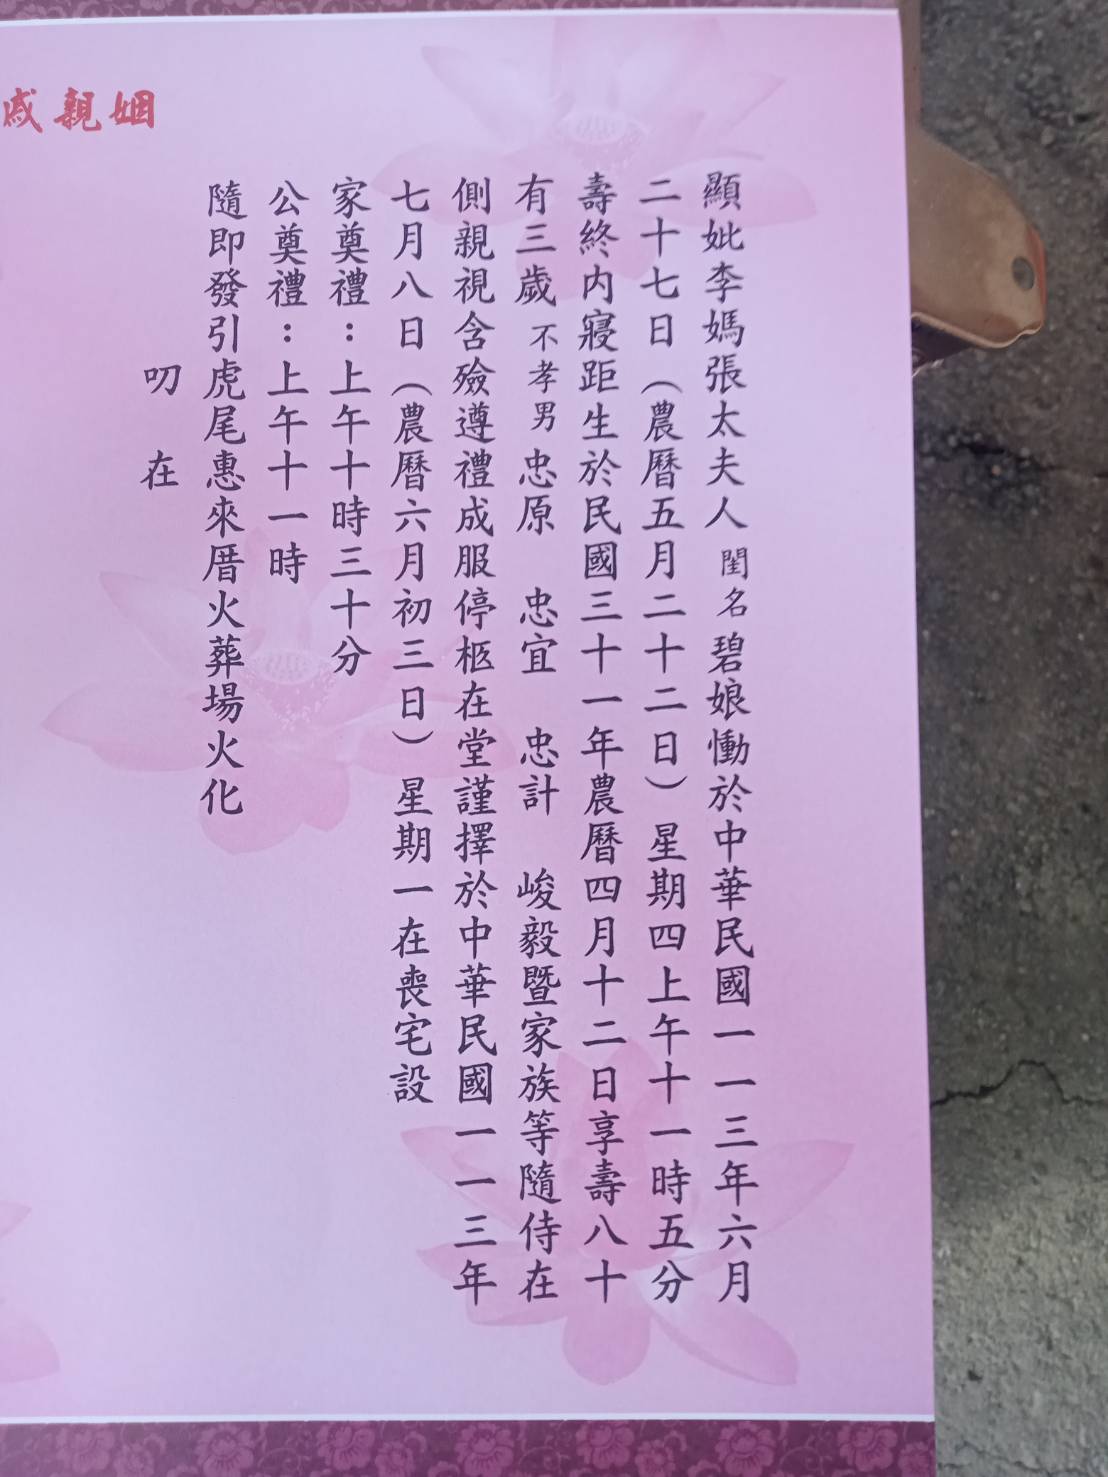 姻親戚
顯妣李媽張太夫人閨名碧娘慟於中華民國一一三年六月
二十七日（農曆五月二十二日）星期四上午十一時五分
壽終內寢距生於民國三十一年農曆四月十二日享壽八十
有三歲不孝男忠原 忠宜 忠計 峻毅暨家族等隨侍在
側親視含殮遵禮成服停柩在堂謹擇於中華民國一一三年
七月八日（農曆六月初三日）星期一在喪宅設
家奠禮：上午十時三十分
公奠禮：上午十一時
隨即發引虎尾惠來厝火葬場火化
叨在